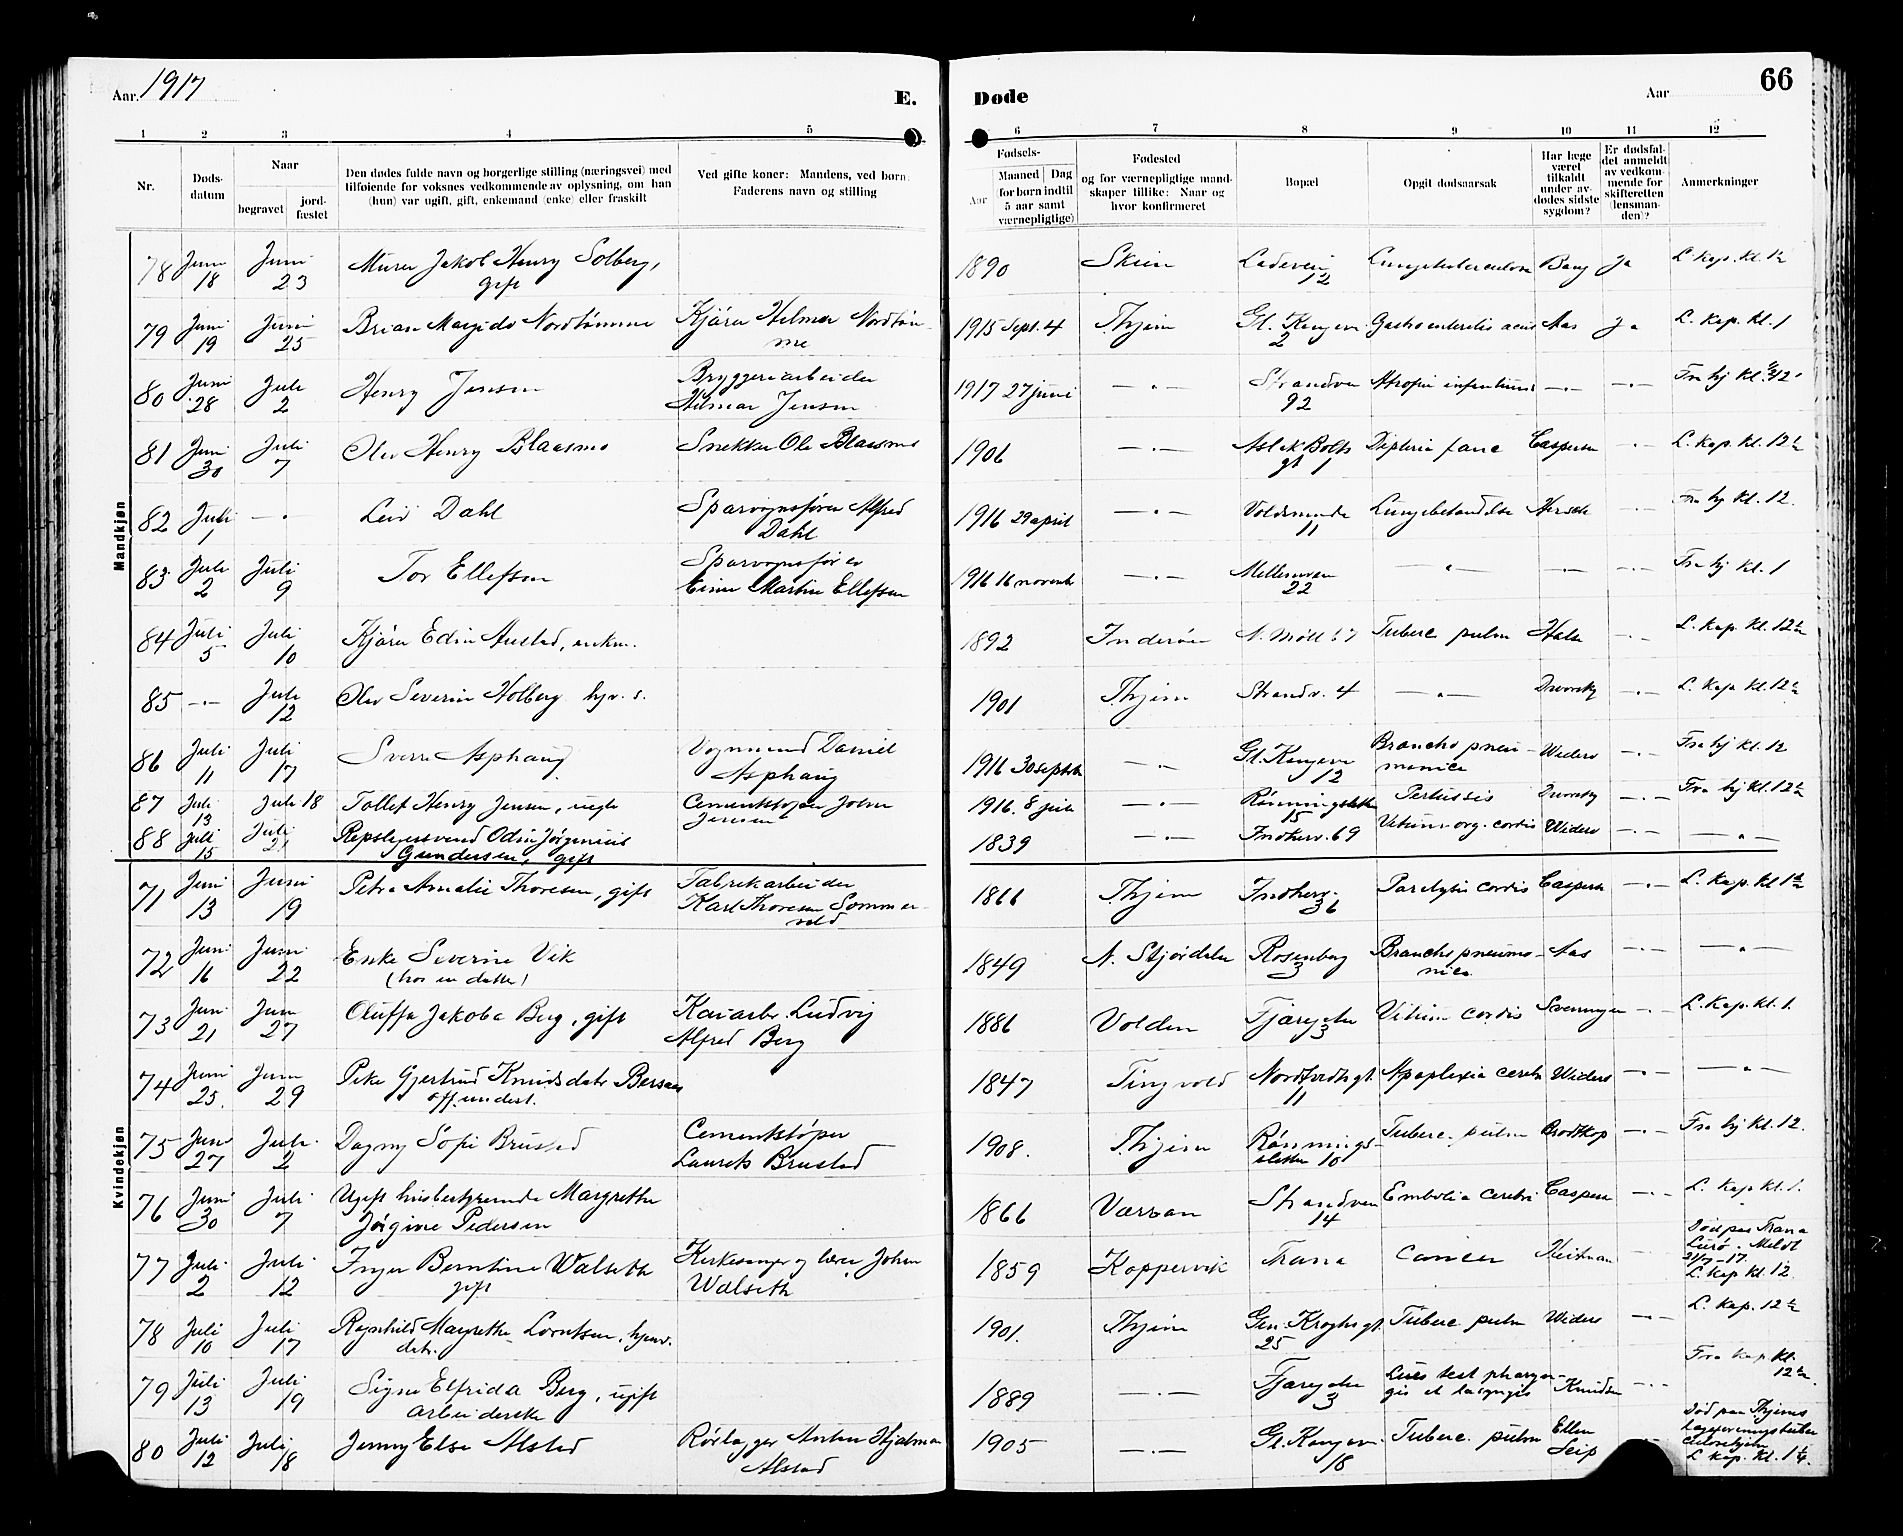 Aar. 1917
E.
Døde
Aar
66
1 2 3 4 5 6 7 8 9 10 11 12
Nr.
Døds-
datum
Naar
begravet
jord-
fæstet
Den dødes fulde navn og borgerlige stilling (næringsvei) med
tilføiende for voksnes vedkommende av oplysning, om han
(hun) var ugift, gift, enkemand (enke) eller fraskilt
Ved gifte koner: Mandens, ved børn:
Faderens navn og stilling
Fødsels-
Aar
Maaned Dag
for børn indtil
5 aar samt
værnepligtige)
Fødested
og for værnepligtige mand-
skaper tillike: Naar og
hvor konfirmeret
Bopæl
Opgit dødsaarsak
Har læge
været
tilkaldt
under av-
dødes sidste
sygdom?
Er dødsfal-
det anmeldt
av vedkom-
mende for
skifteretten
(lensman-
den)?
Anmerkninger
Mandkjøn
78 Juni 18 Juni 23 Murer Jakob Henry Solberg, gift 1890 Skien Ladevein 12 Lungetuberculose Ja L. Kap. Kl. 12
79 Juni 19 Juni 25 Nordtømme Kjårer Hilmer Nordtøm-
me 1915 Sept. 4 Thjem 2 Gastroenteritis acut Aas Ja L. Kap. Kl. 1
80 Juni 28 Juli 2 Henry Jensen Bryggeriarbeider
Hilmar Jensen 1917 27 juni — " — Strandvn 92 Atrofia infantium — " — — " — Fra hj Kl.
81 Juni 30 Juli 7 Olav Henry Blaasmo Snekker Ole Blaasmo 1906 — " — Aslak Bolts gt 1 Difteria Caspersen — " — L. Kap. Kl. 12½
82 Juli 1 — " — Leiv Dahl Sporvognsfører Alfred
Dahl 1916 29 april — " — 11 Lungebetændelse — " — Fra hj Kl. 12.
83 Juli 2 Juli 9 Tor Ellefsen Sporvognsfører
Einar Martin Ellefsen 1916 16 novemb — " — Mellemvn 22 — " — — " — — " — Fra hj Kl. 1
84 Juli 5 Juli 10 Kjårer Edin Austad, enkm. 1892 Inderøen Tuberc pulm — " — L. Kap. Kl. 12½
85 — " — Juli 12 Olav Severin Holberg hjv. s. 1901 Thjem Strandv. 4 — " — Dworsky — " — L. Kap Kl. 12½
86 Juli 11 Juli 17 Sverre Asphaug Vognmand Daniel
Asphaug 1916 30 septbr — " — Gl. Kongevn 12 Broncho pneu-
monica Widerø — " — Fra hj Kl. 12
87 Juli 13 Juli 18 Tollef Henry Jensen, Cementstøper Johan
Jensen 1916. 8 juli — " — Rønningsletten 15 Pertussis Dworsky — " — Fra hj Kl. 12½
88 Juli 15 Juli 21 Repslagersvend Odin Jørgenius
Gundersen, gift 1839 — " — Indherv. 69 Vitium org. cordis Widerø — " — — " —
Kvindekjøn
71 Juni 13 Juni 19 Petra Amalie Thoresen, gift Fabrikarbeider
Karl Thoresen Sommer-
vold 1866 Thjem Indherv. 36 Paralysis cordis Caspersen — " — L. Kap. Kl 1½
72 Juni 16 Juni 22 Enke Severine Vik
(hos en datter) 1849 N. Stjørdalen Rosenborg 3 Broncho pneumo-
nica Aas — " — — " —
73 Juni 21 Juni 27 Oluffa Jakoba Berg, gift Kaiarb. Ludvig
Alfred Berg 1886 Volden Fjæregaten 3 Vitium cordis — " — L. Kap. Kl. 1.
74 Juni 25. Juni 29 Pike Gjertrud Knudsdatr Bersaas
off. underst. 1847 Tingvold 11 Apoplexia cerebri Widerø — " — — " —
75 Juni 27 Juli 2 Dagny Sofie Brustad Cementstøper
Laurits Brustad 1908. Thjem Rønnings-
sletten 10 Tuberc. pulm Brodtkop — " — Fra hj Kl. 12.
76 Juni 30 Juli 7 Ugift husbestyrerinde Margrethe
Jørgine Pedersen 1866 Værran Strandvn 14 Embolia cerebri Caspersen — " — L. Kap Kl. 1.
77 Juli 2 Juli 12 Inger Berntine Walseth
gift Kirkesanger og lærer Johan
Walseth 1859 Koppervik Træna Cancer Heitman Død paa Træna
Lurø. Meldt
L. Kap Kl. 12
78 Juli 10 Juli 17 Ragnhild Margrethe Lorntsen, hjemv.
datr. 1901. Thjem Gen. Kroghsgt 25 Tuberc pulm Widerø — " — L. Kap. 12½
79 Juli 13 Juli 19 Signe Elfrida Berg, ugift
arbeiderske 1889 — " — Fjæregaten 3 Lues tert pharyn-
gis et laryngis Knudsen — " — Fra Kap Kl.
12½
80 Juli 12 Juli 18 Jenny Else Alstad Rørlægger Anton Hjalmar
Alstad 1905 — " — Gl. Kongev. 18 Tuberc. pulm Ellen
Seip Død paa Thjems
L Kap. Kl. 1¼.